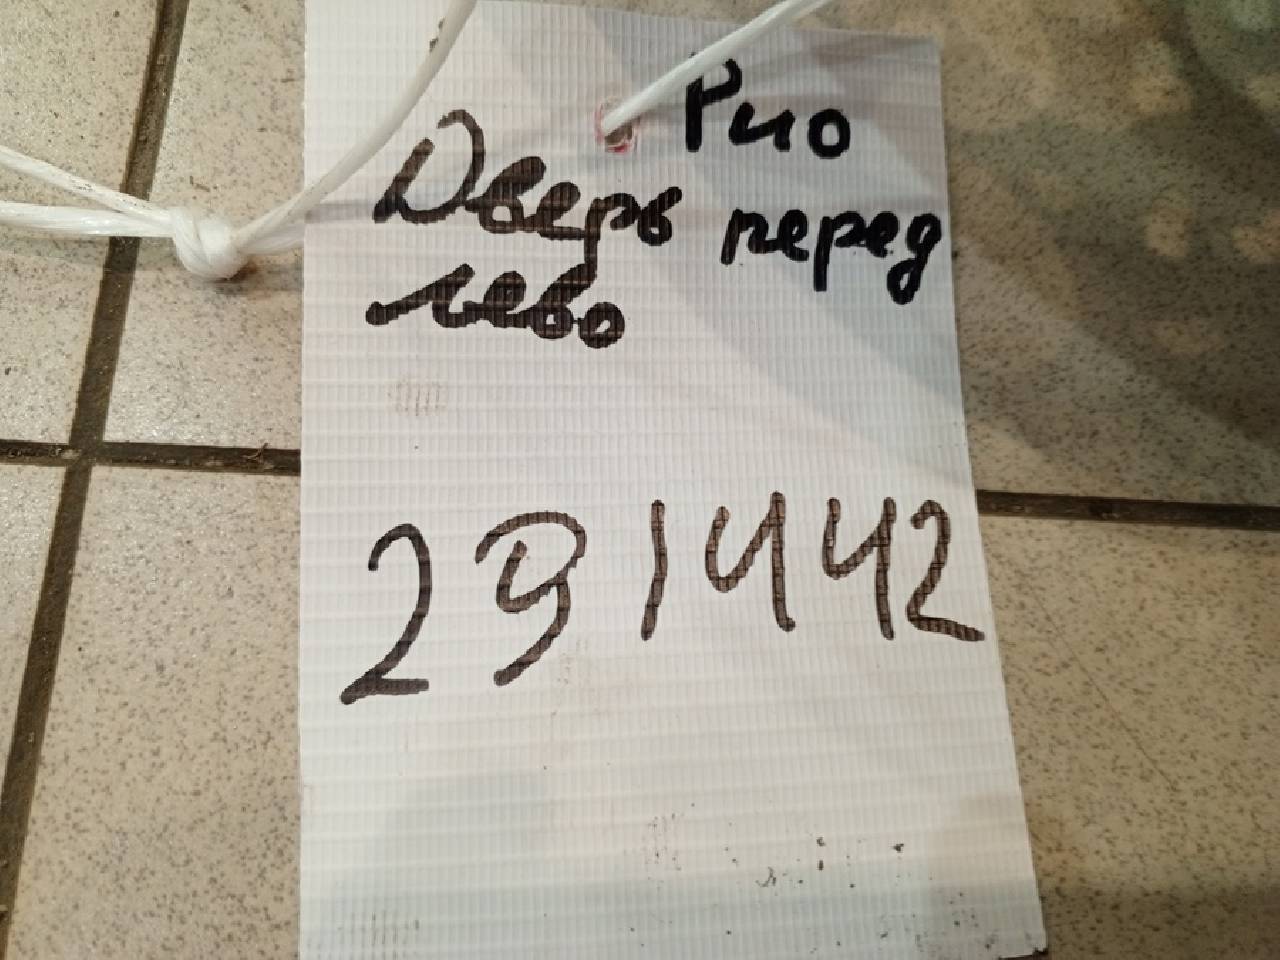 Рио
Дверь перед
лево
291442